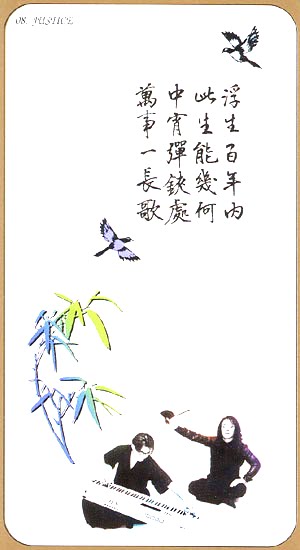 08. JUSTICE
浮生百年内
此生能幾何
中宵彈鋏處
萬事一長歌